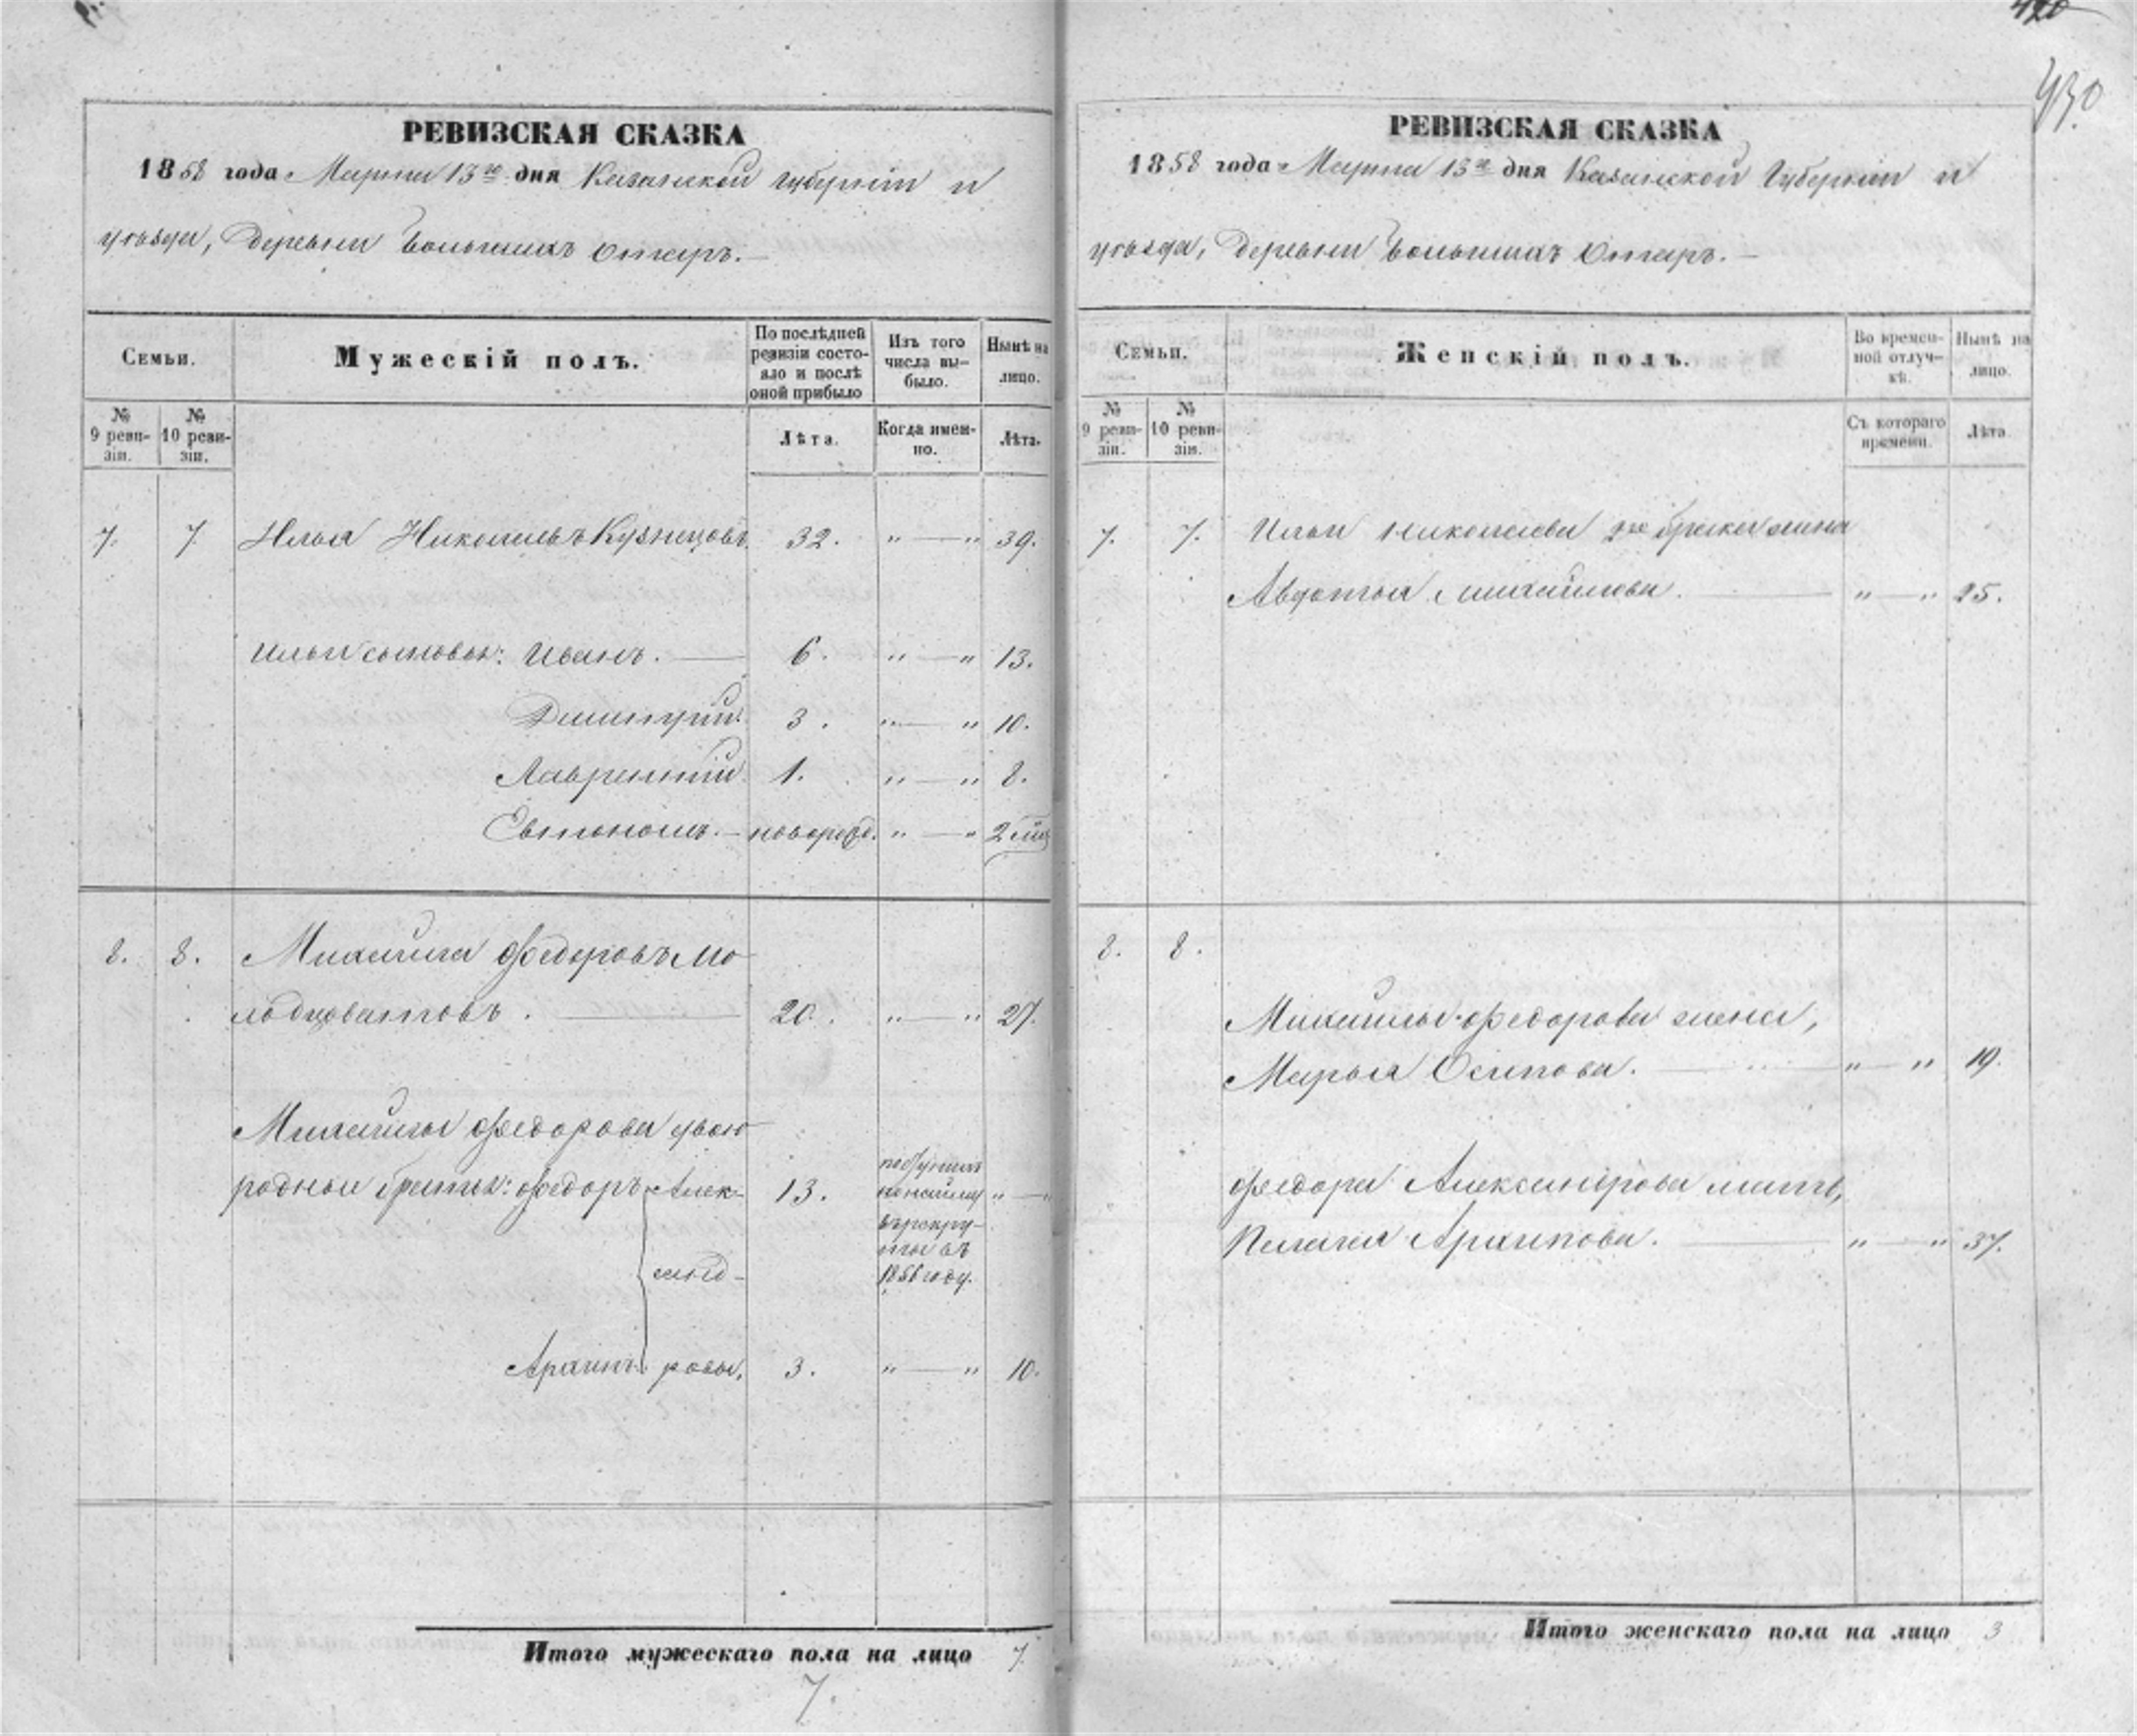 420
430
РЕВИЗСКАЯ СКАЗКА
1858 года Марта 13го дня Казанской губернiи и
уѣзда, деревни Большихъ Отаръ.
Семьи.
Мужескiй полъ.
По послѣдней ревизiи состояло и послѣ оной прибыло
Изъ того числа выбыло.
Нынѣ на лицо.
№ 9 ревизiи.
№ 10 ревизiи.
Лѣта.
Когда именно.
Лѣта.
7. 7. Илья Николаевъ Кузнецовъ 32. "—" 39.
Ильи сыновья: Иванъ. 6. "—" 13.
Дмитрiй. 3. "—" 10.
Лаврентiй 1. "—" 8.
Евтономъ. новорожд. "—" 2 мѣс
8. 8. Михайла Федоровъ Мо
лодцоватовъ. 20. "—" 27.
Михайлы Федорова двою
родные братья: Федоръ Алек- 13. "—"
поступилъ
въ рекру-
ты въ
1856 году.
санд-
Архипъ ровы, 3. "—" 10.
Итого мужескаго пола на лицо 7.
7.
РЕВИЗСКАЯ СКАЗКА
1858 года Марта 13го дня Казанской Губернiи и
уѣзда, деревни Большихъ Отаръ.
Семьи.
Женскiй полъ.
Во времен-
ной отлуч-
кѣ.
Нынѣ на
лицо.
№ 9 ревизiи.
№ 10 ревизiи.
Съ котораго
времени.
Лѣта.
7. 7. Ильи Николаева 2го брака жена
Авдотья Михайлова. "—" 25.
8. 8.
Михайлы Федорова жена,
Марья Осипова. "—" 19.
Федора Александрова мать,
Пелагея Архипова. "—" 37.
Итого женскаго пола на лицо 3